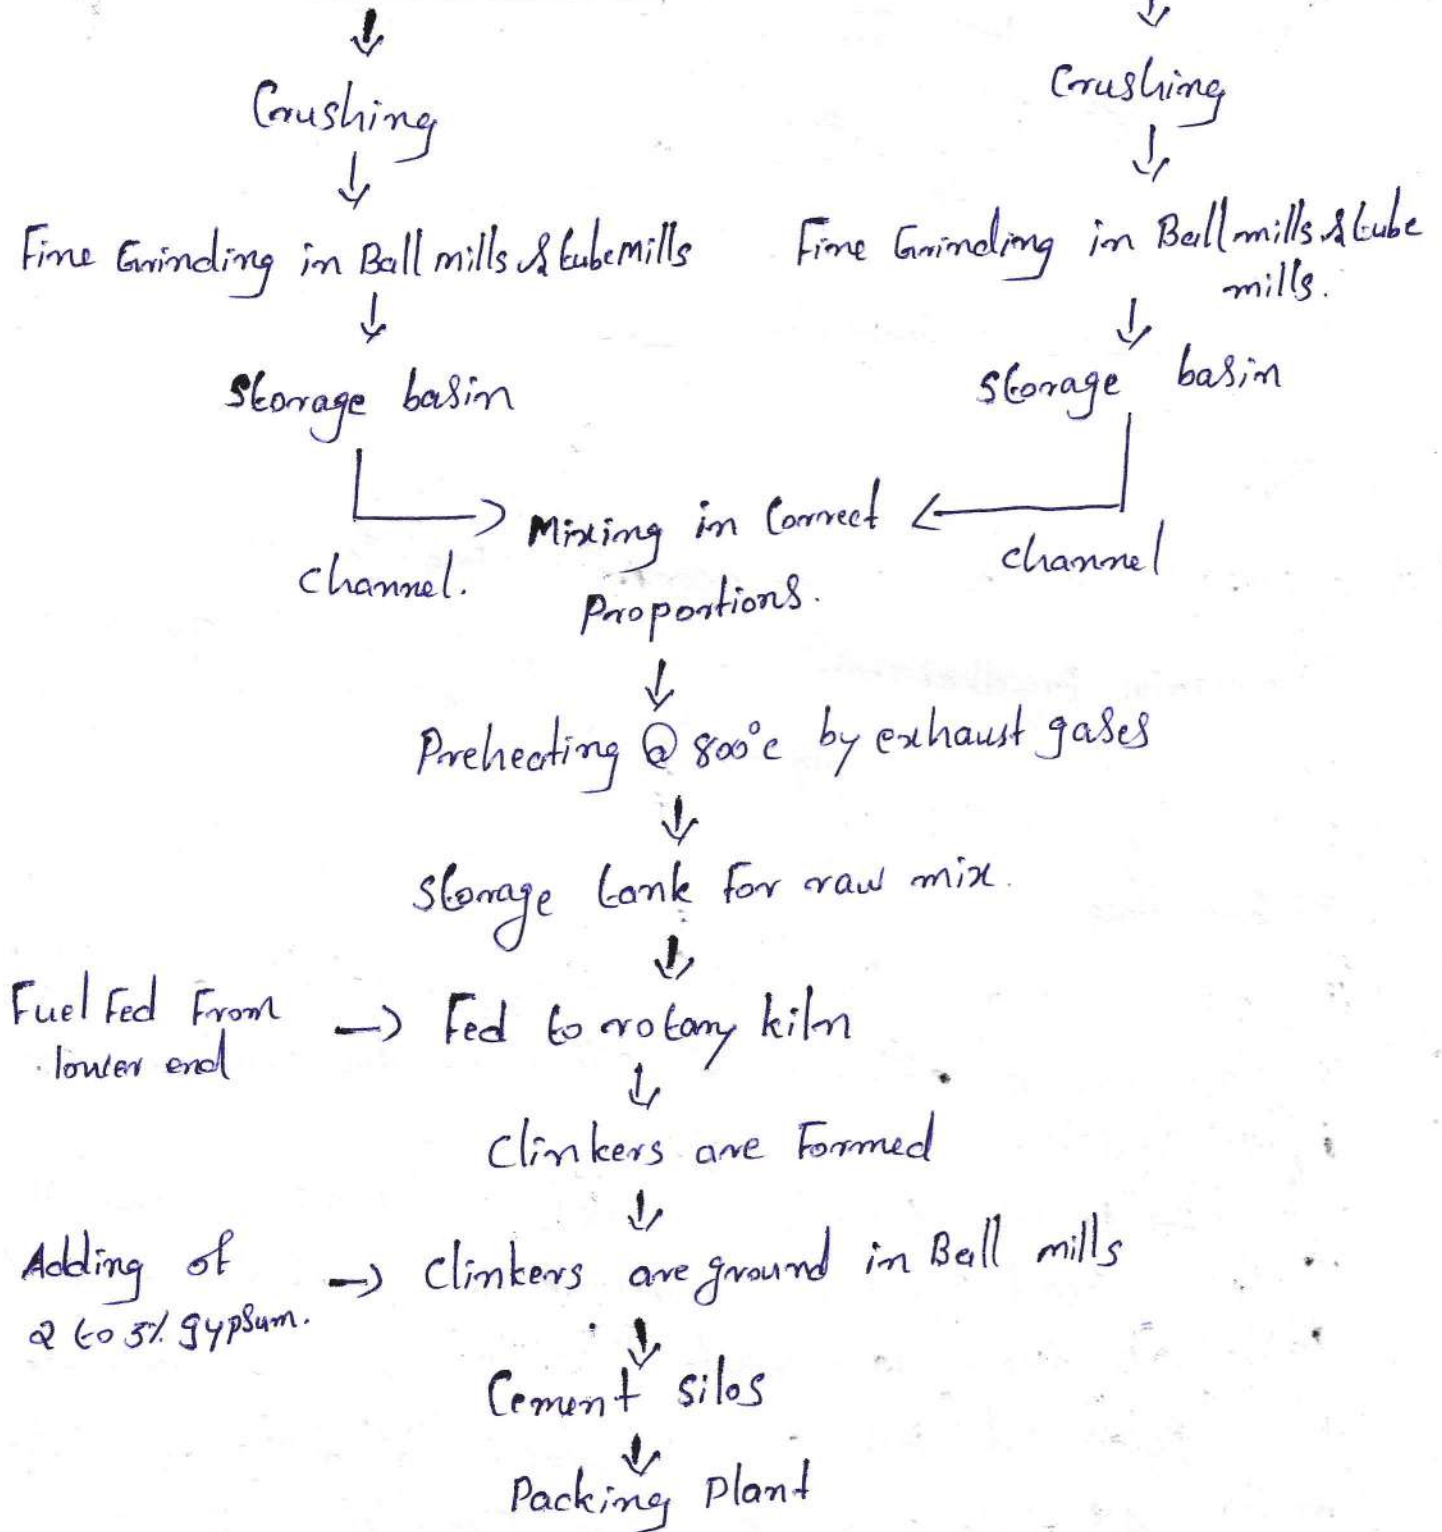 Crushing
Crushing
Fine Grinding in Ball mills & tube mills
Fine Grinding in Ball mills & tube
mills.
Storage basin
Storage basin
Mixing in Correct
Proportions.
channel.
channel
Preheating @ 800°c by exhaust gases
Storage tank for raw mix.
Fuel Fed From
lower end
Fed to rotary kiln
Clinkers are Formed
Adding of
2 to 3% gypsum.
Clinkers are ground in Ball mills
Cement silos
Packing Plant